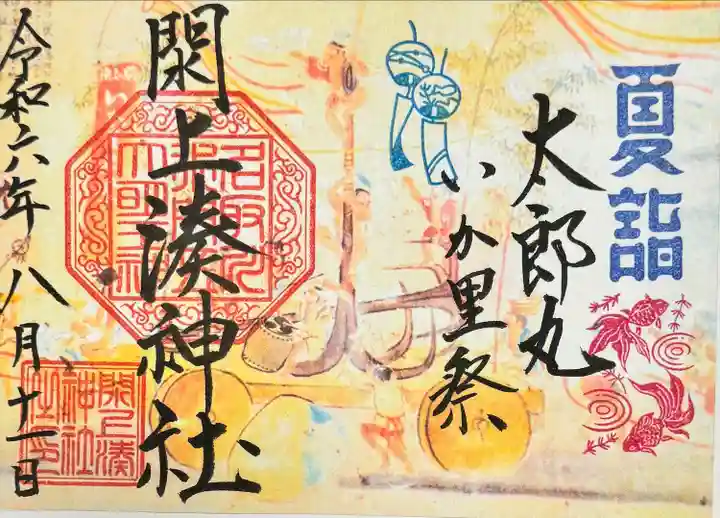 夏詣
太郎丸
いか里祭
閖上湊神社
令和六年八月十一日
閖上湊
神社